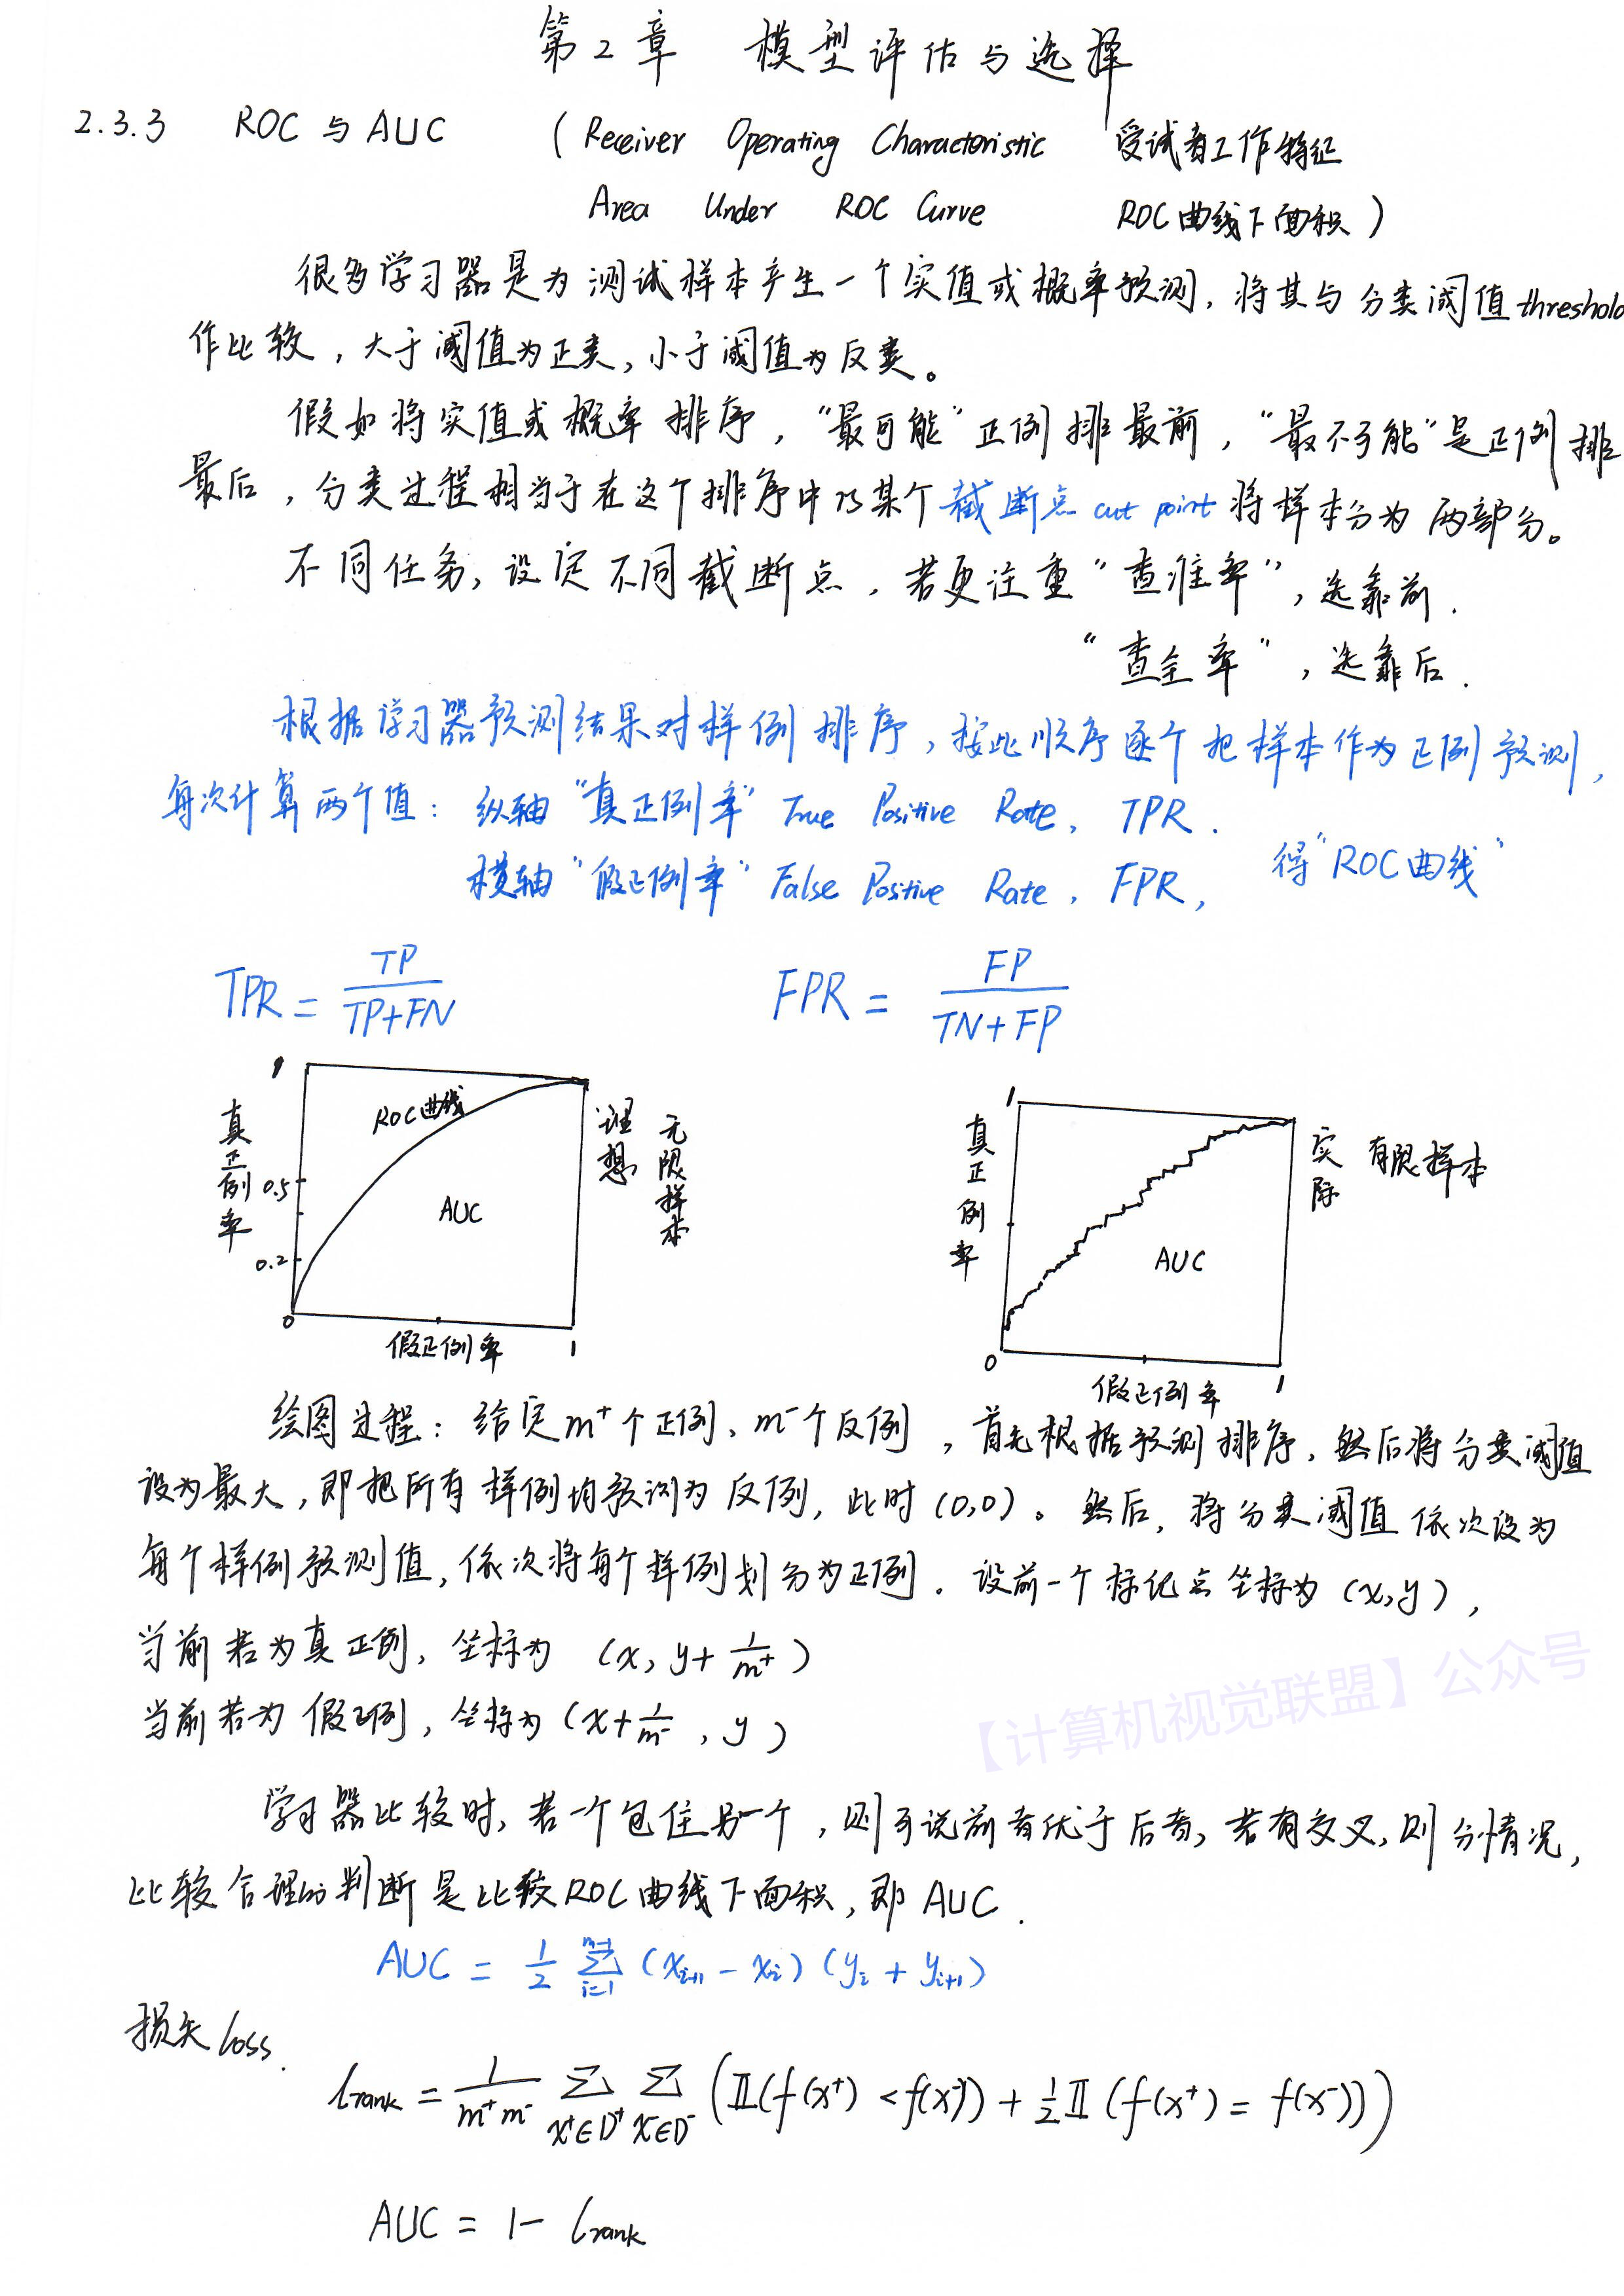 第2章 模型评估与选择
2.3.3 ROC与AUC (Receiver Operating Characteristic 受试者工作特征
Area Under ROC Curve ROC曲线下面积)
很多学习器是为测试样本产生一个实值或概率预测,将其与分类阈值threshold
作比较,大于阈值为正类,小于阈值为反类。
假如将实值或概率排序,“最可能”正例排最前,“最不可能”是正例排
最后,分类过程相当于在这个排序中以某个截断点cut point将样本分为两部分。
不同任务,设定不同截断点,若更注重“查准率”,选靠前.
“查全率”,选靠后.
根据学习器预测结果对样例排序,按此顺序逐个把样本作为正例预测,
每次计算两个值: 纵轴“真正例率”True Positive Rate, TPR.
横轴“假正例率”False Positive Rate, FPR, 得“ROC曲线”
TPR = TP/(TP+FN) FPR = FP/(TN+FP)
1
真正例率
0.5
0.2
0
ROC曲线
AUC
假正例率
1
理想
无限样本
1
真正例率
0
AUC
假正例率
1
实际
有限样本
绘图过程: 给定m⁺个正例、m⁻个反例,首先根据预测排序,然后将分类阈值
设为最大,即把所有样例均预测为反例,此时(0,0)。然后,将分类阈值依次设为
每个样例预测值,依次将每个样例划分为正例.设前一个标记点坐标为(x,y),
当前若为真正例,坐标为 (x, y+1/m⁺)
当前若为假正例,坐标为(x+1/m⁻, y)
【计算机视觉联盟】公众号
学习器比较时,若一个包住另一个,则可说前者优于后者,若有交叉,则分情况,
比较合理的判断是比较ROC曲线下面积,即AUC.
AUC = 1/2 ∑_{i=1}^{m-1} (x_{i+1} - x_i)(y_i + y_{i+1})
损失loss.
ℓrank = 1/(m⁺m⁻) ∑_{x⁺∈D⁺} ∑_{x⁻∈D⁻} (𝕀(f(x⁺) < f(x⁻)) + 1/2 𝕀(f(x⁺) = f(x⁻)))
AUC = 1 - ℓrank